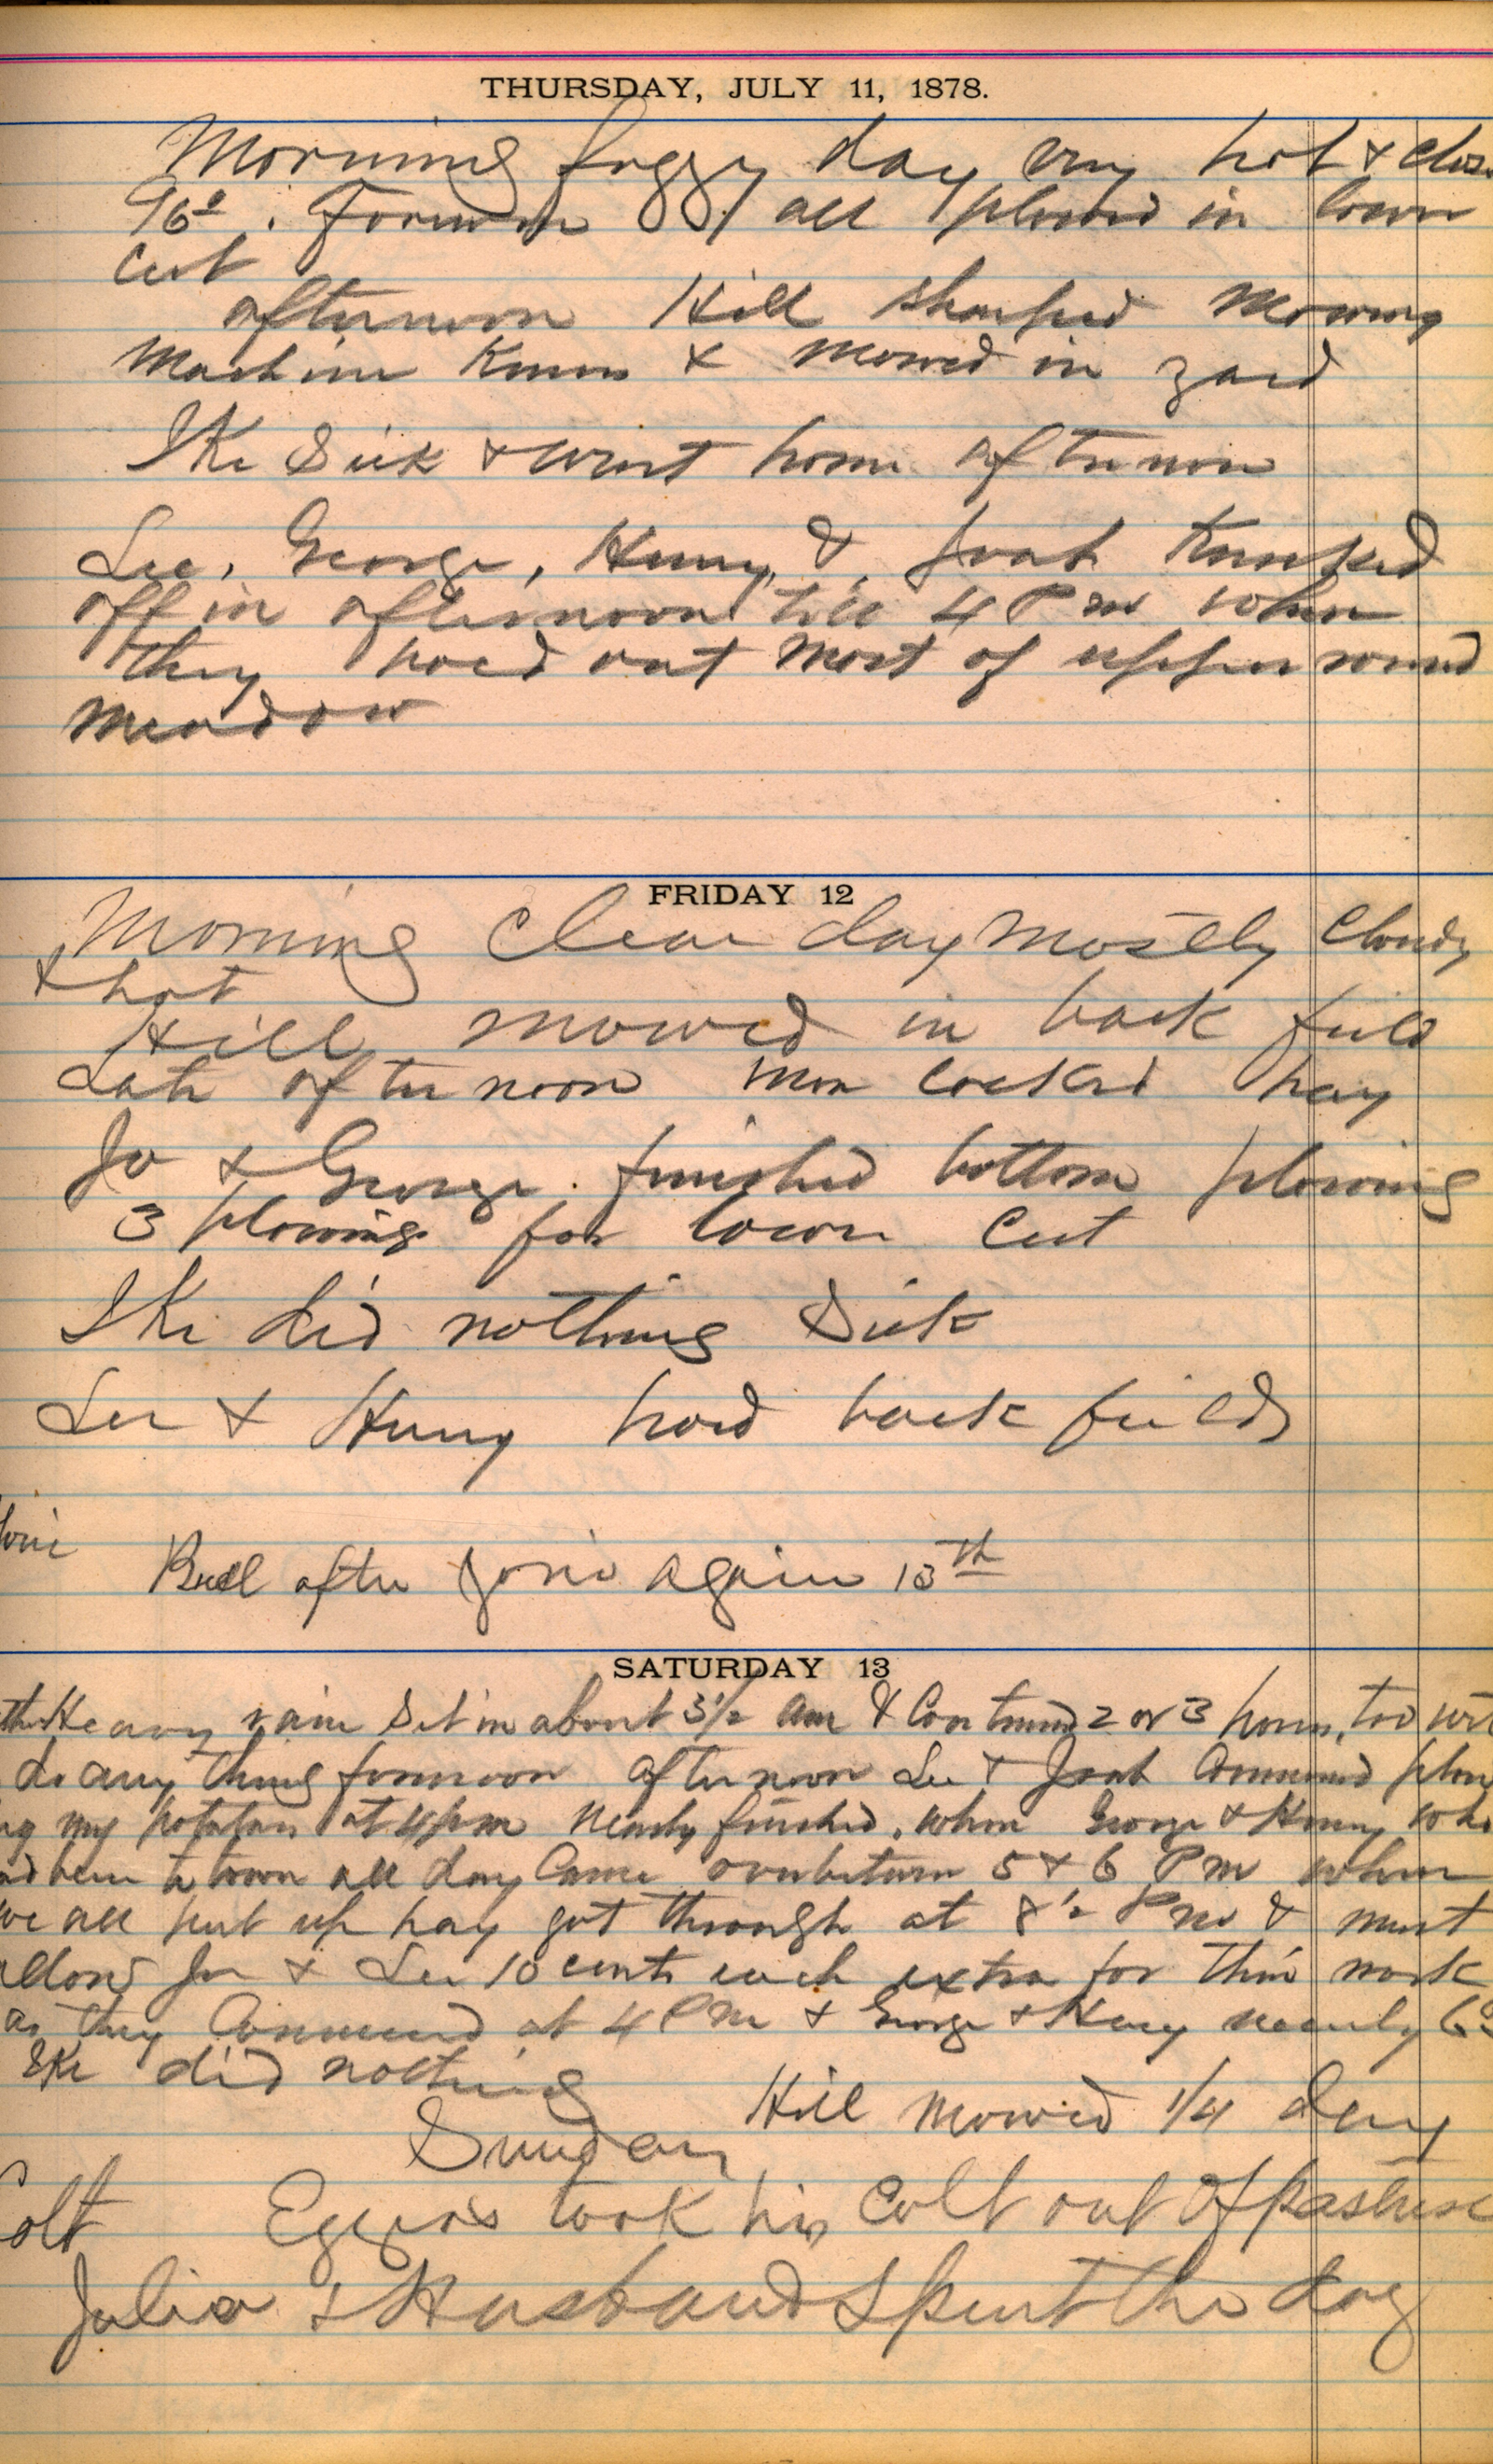 THURSDAY, JULY 11, 1878.
Morning foggy day very hot & close
96°. Forenoon all plowed in lower
cut
afternoon Hill sharped mowing
Machine Knives & mowed in yard
Ike Sick & went home afternoon
Lee, George, Henry & Joab Knocked
off in afternoon till 4 P m when
they hoed out most of upper round
meadow
FRIDAY 12
Morning Clear day mostly Cloudy
& hot
Hill mowed in back field
Late afternoon men cocked hay
Jo & George finished bottom plowing
3 plowings for lower Cut
Ike did nothing Sick
Lee & Henry hoed back field
Bull after again 13th
SATURDAY 13
Heavy rain Set in about 3½ am & Continued 2 or 3 hours, too wet
do any thing forenoon afternoon Lee & Joab Commenced plow
ng my potatoes at 4 pm Nearly finished, when George & Henry who
ad been to town all day Came over between 5 & 6 P m when
we all put up hay got through at 8½ P m & must
allow Jo & Lee 10 cents each extra for this work
as they Commenced at 4 P m & George & Henry nearly 6
Ike did nothing
Hill mowed 1/4 day
Sunday
Colt took his Colt out of pasture
Julia & Husband Spent the day